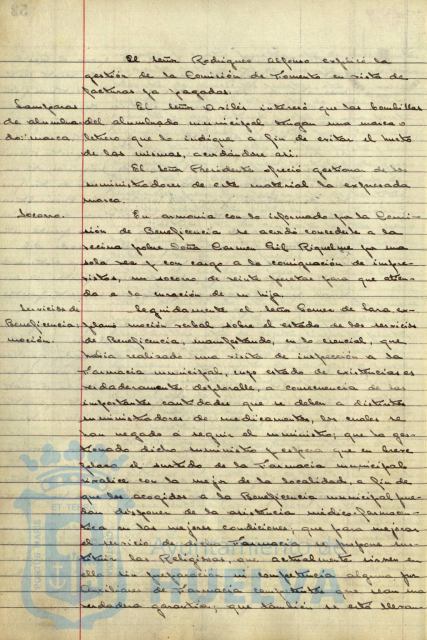 El señor Rodriguez Alfonso explicó la
gestión de la Comisión de Fomento en vista de
facturas ya pagadas.
Lamparas
de alumbra
do: marca.
El señor Avilés interesó que las bombillas
del alumbrado municipal tengan una marca o
letrero que lo indique a fin de evitar el hurto
de las mismas, acordándose así.
El señor Presidente ofreció gestionar de los
suministradores de este material la expresada
marca.
Socorro.
En armonía con lo informado por la Comi-
sión de Beneficencia se acordó concederle a la
vecina pobre Doña Carmen Gil Riquelme por una
sola vez y con cargo a la consignación de impre-
vistos, un socorro de veinte pesetas para que atien-
da a la curación de su hija.
Servicios de
Beneficencia:
moción.
Seguidamente el señor Gomez de Lara, ex-
planó moción verbal sobre el estado de los servicios
de Beneficencia, manifestando, en lo esencial, que
había realizado una visita de inspección a la
Farmacia municipal, cuyo estado de existencias es
verdaderamente deplorable, a consecuencia de las
importantes cantidades que se deben a distintos
suministradores de medicamentos, los cuales se
han negado a seguir el suministro; que ha ges-
tionado dicho suministro y espera que en breve
plazo el surtido de la Farmacia municipal
rivalice con la mejor de la localidad, a fin de
que los acogidos a la Beneficencia municipal pue-
dan disponer de la asistencia médico-farmaceu-
tica en las mejores condiciones; que para mejorar
el servicio de dicha Farmacia se propone sus-
tituir las Religiosas, que actualmente sirven en
ella sin preparación ni competencia alguna por
Auxiliares de Farmacia competentes que sean una
verdadera garantía; que también se está llevan-